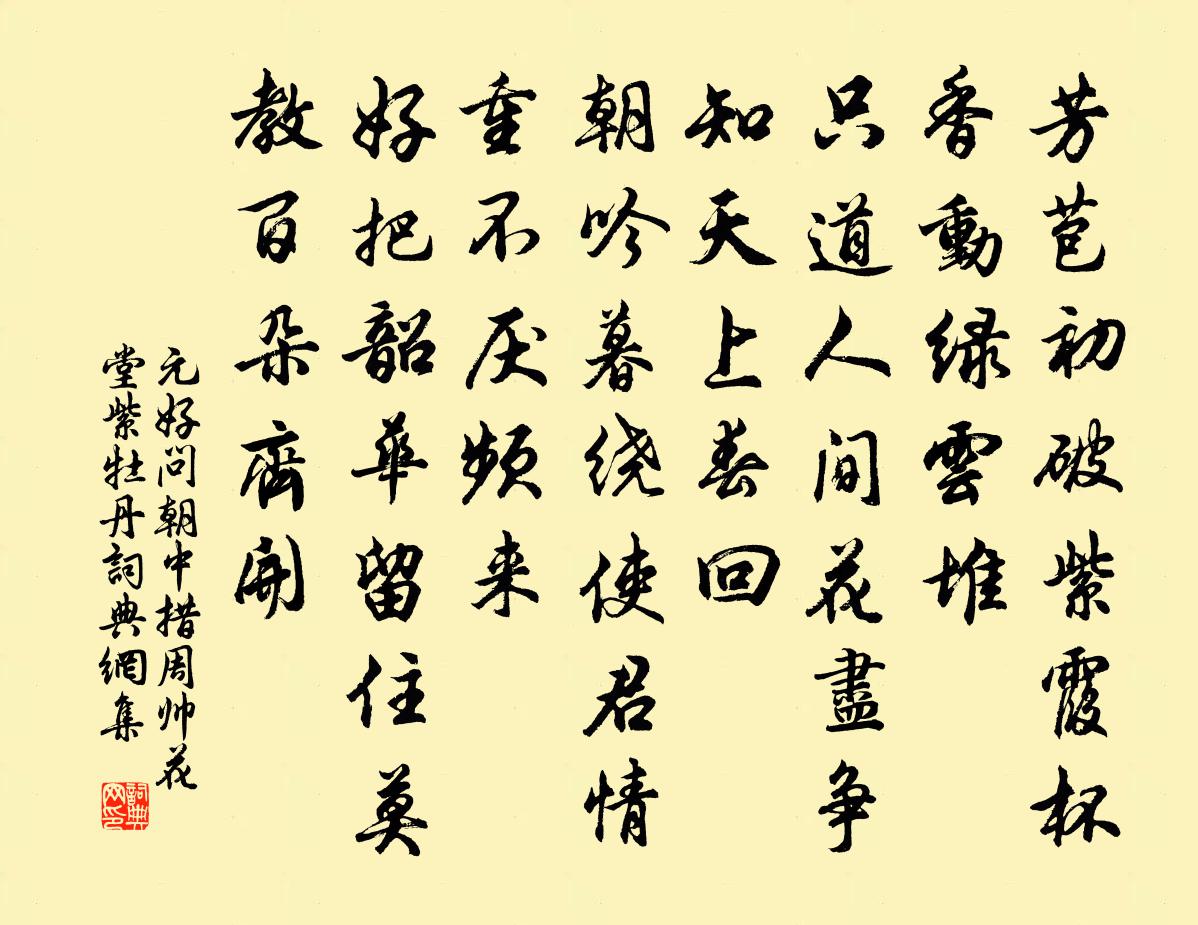 芳苞初破紫霞杯
香動绿雲堆
只道人间花盡争
知天上春回
朝吟暮绕使君情
重不厌频来
好把韶華留住莫
教百朵齊開
元好问朝中措周帅花
堂紫牡丹詞典網集
詞典
网印